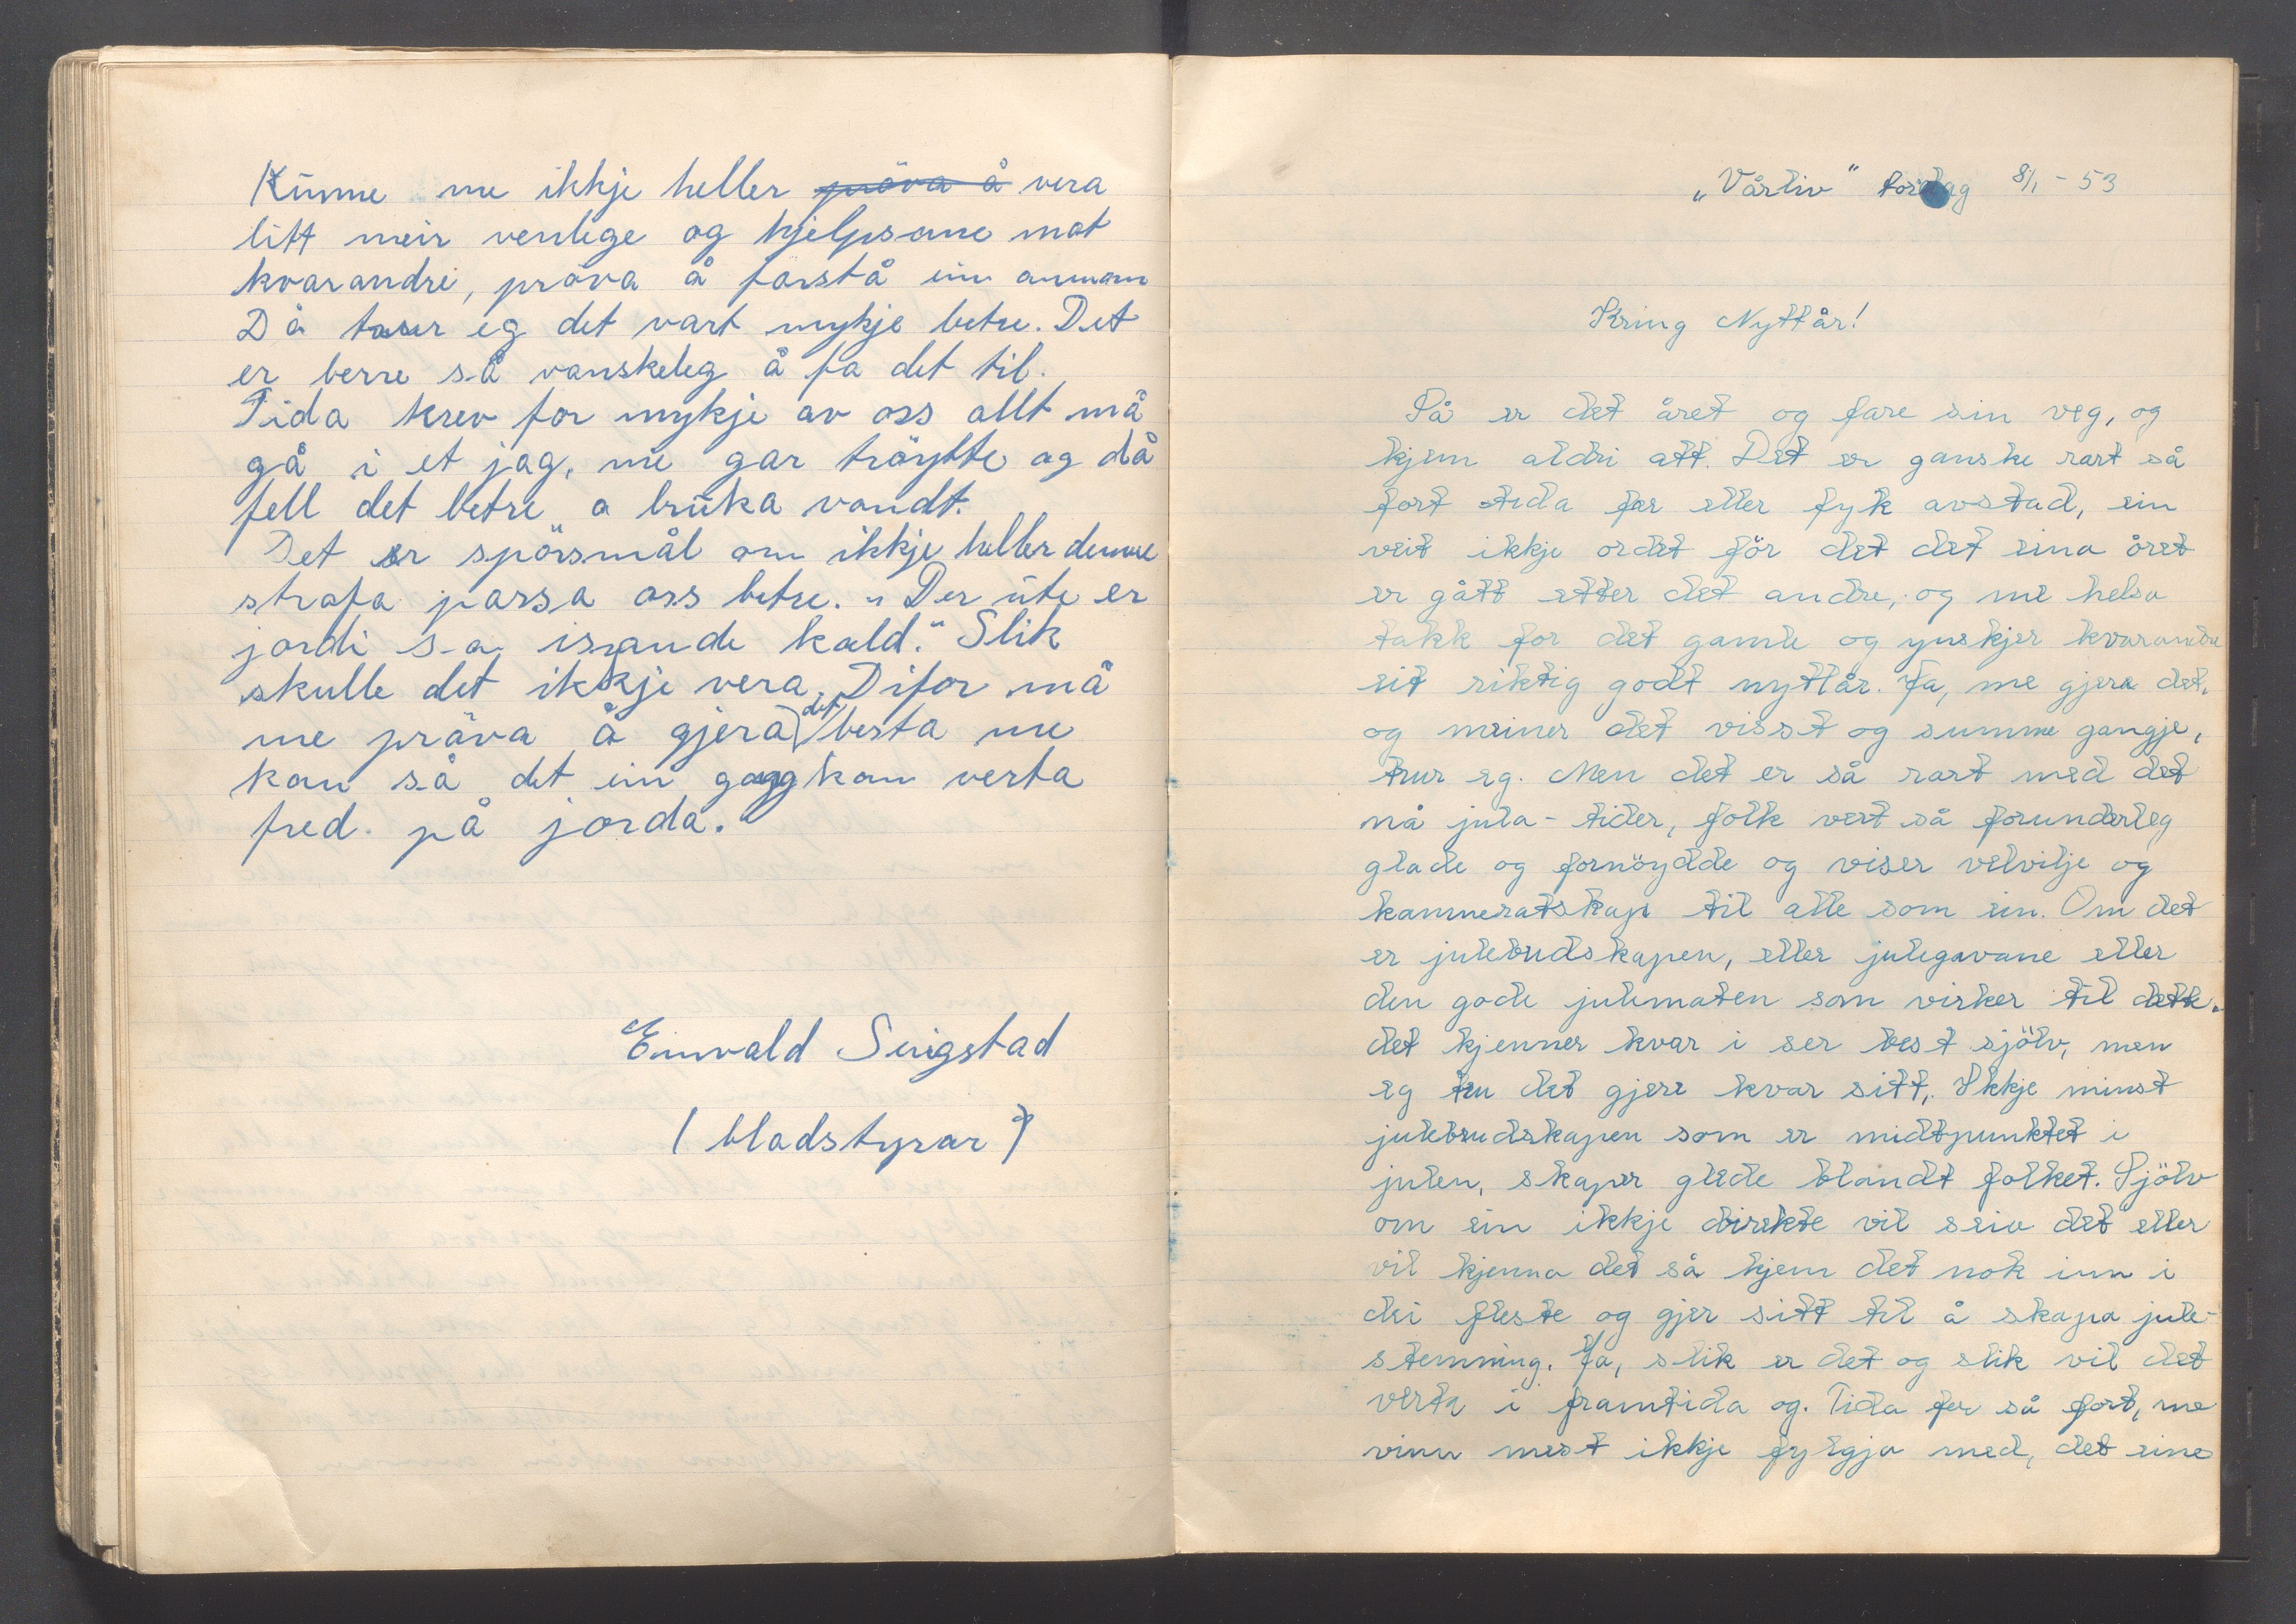 Kunne me ikkje heller pröva å vera
litt meir venlege og hjelpsame mot
kvarandre, pröva å forstå ein annan
Då torer eg det vart mykje betre. Det
er berre så vanskeleg å fa det til.
Tida krev for mykje av oss allt må
gå i et jag, me gar tröytte og då
fell det betre a bruka vondt.
Det er spörsmål om ikkje heller denne
strofa passa oss betre. „Der ute er
jordi s-a isande kald." Slik
skulle det ikkje vera. Difor må
me pröva å gjera det besta me
kan så det ein gogg kan verta
fred på jorda.
Einvald Seigstad
(bladstyrar)
„Vårliv" torsdag 8/1-53
Kring Nyttår!
Så er det året og fare sin veg, og
kjem aldri att. Det er ganske rart så
fort tida fer eller fyk avstad, ein
veit ikkje ordet för det det eina året
er gått etter det andre, og me helsa
takk for det gamle og ynskjer kvarandre
eit riktig godt nyttår. Ja, me gjera det,
og meiner det visst og summe gangje,
trur eg. Men det er så rart med det
nå jula-tider, folk vert så forunderleg
glade og fornöydde og viser velvilje og
kammeratskap til alle som ein. Om det
er julebudskapen, eller julegavane eller
den gode julematen som virker til dette.
det kjenner kvar i ser best sjölv, men
eg tru det gjere kvar sitt, Ikkje minst
julebudskapen som er midtpunktet i
julen, skaper glede blandt folket. Sjölv
om ein ikkje direkte vil seia det eller
vil kjenna det så kjem det nok inn i
dei fleste og gjer sitt til å skapa jule-
stemning. Ja, slik er det og slik vil det
verta i framtida og. Tida fer så fort, me
vinn mest ikkje fylgja med, det eine